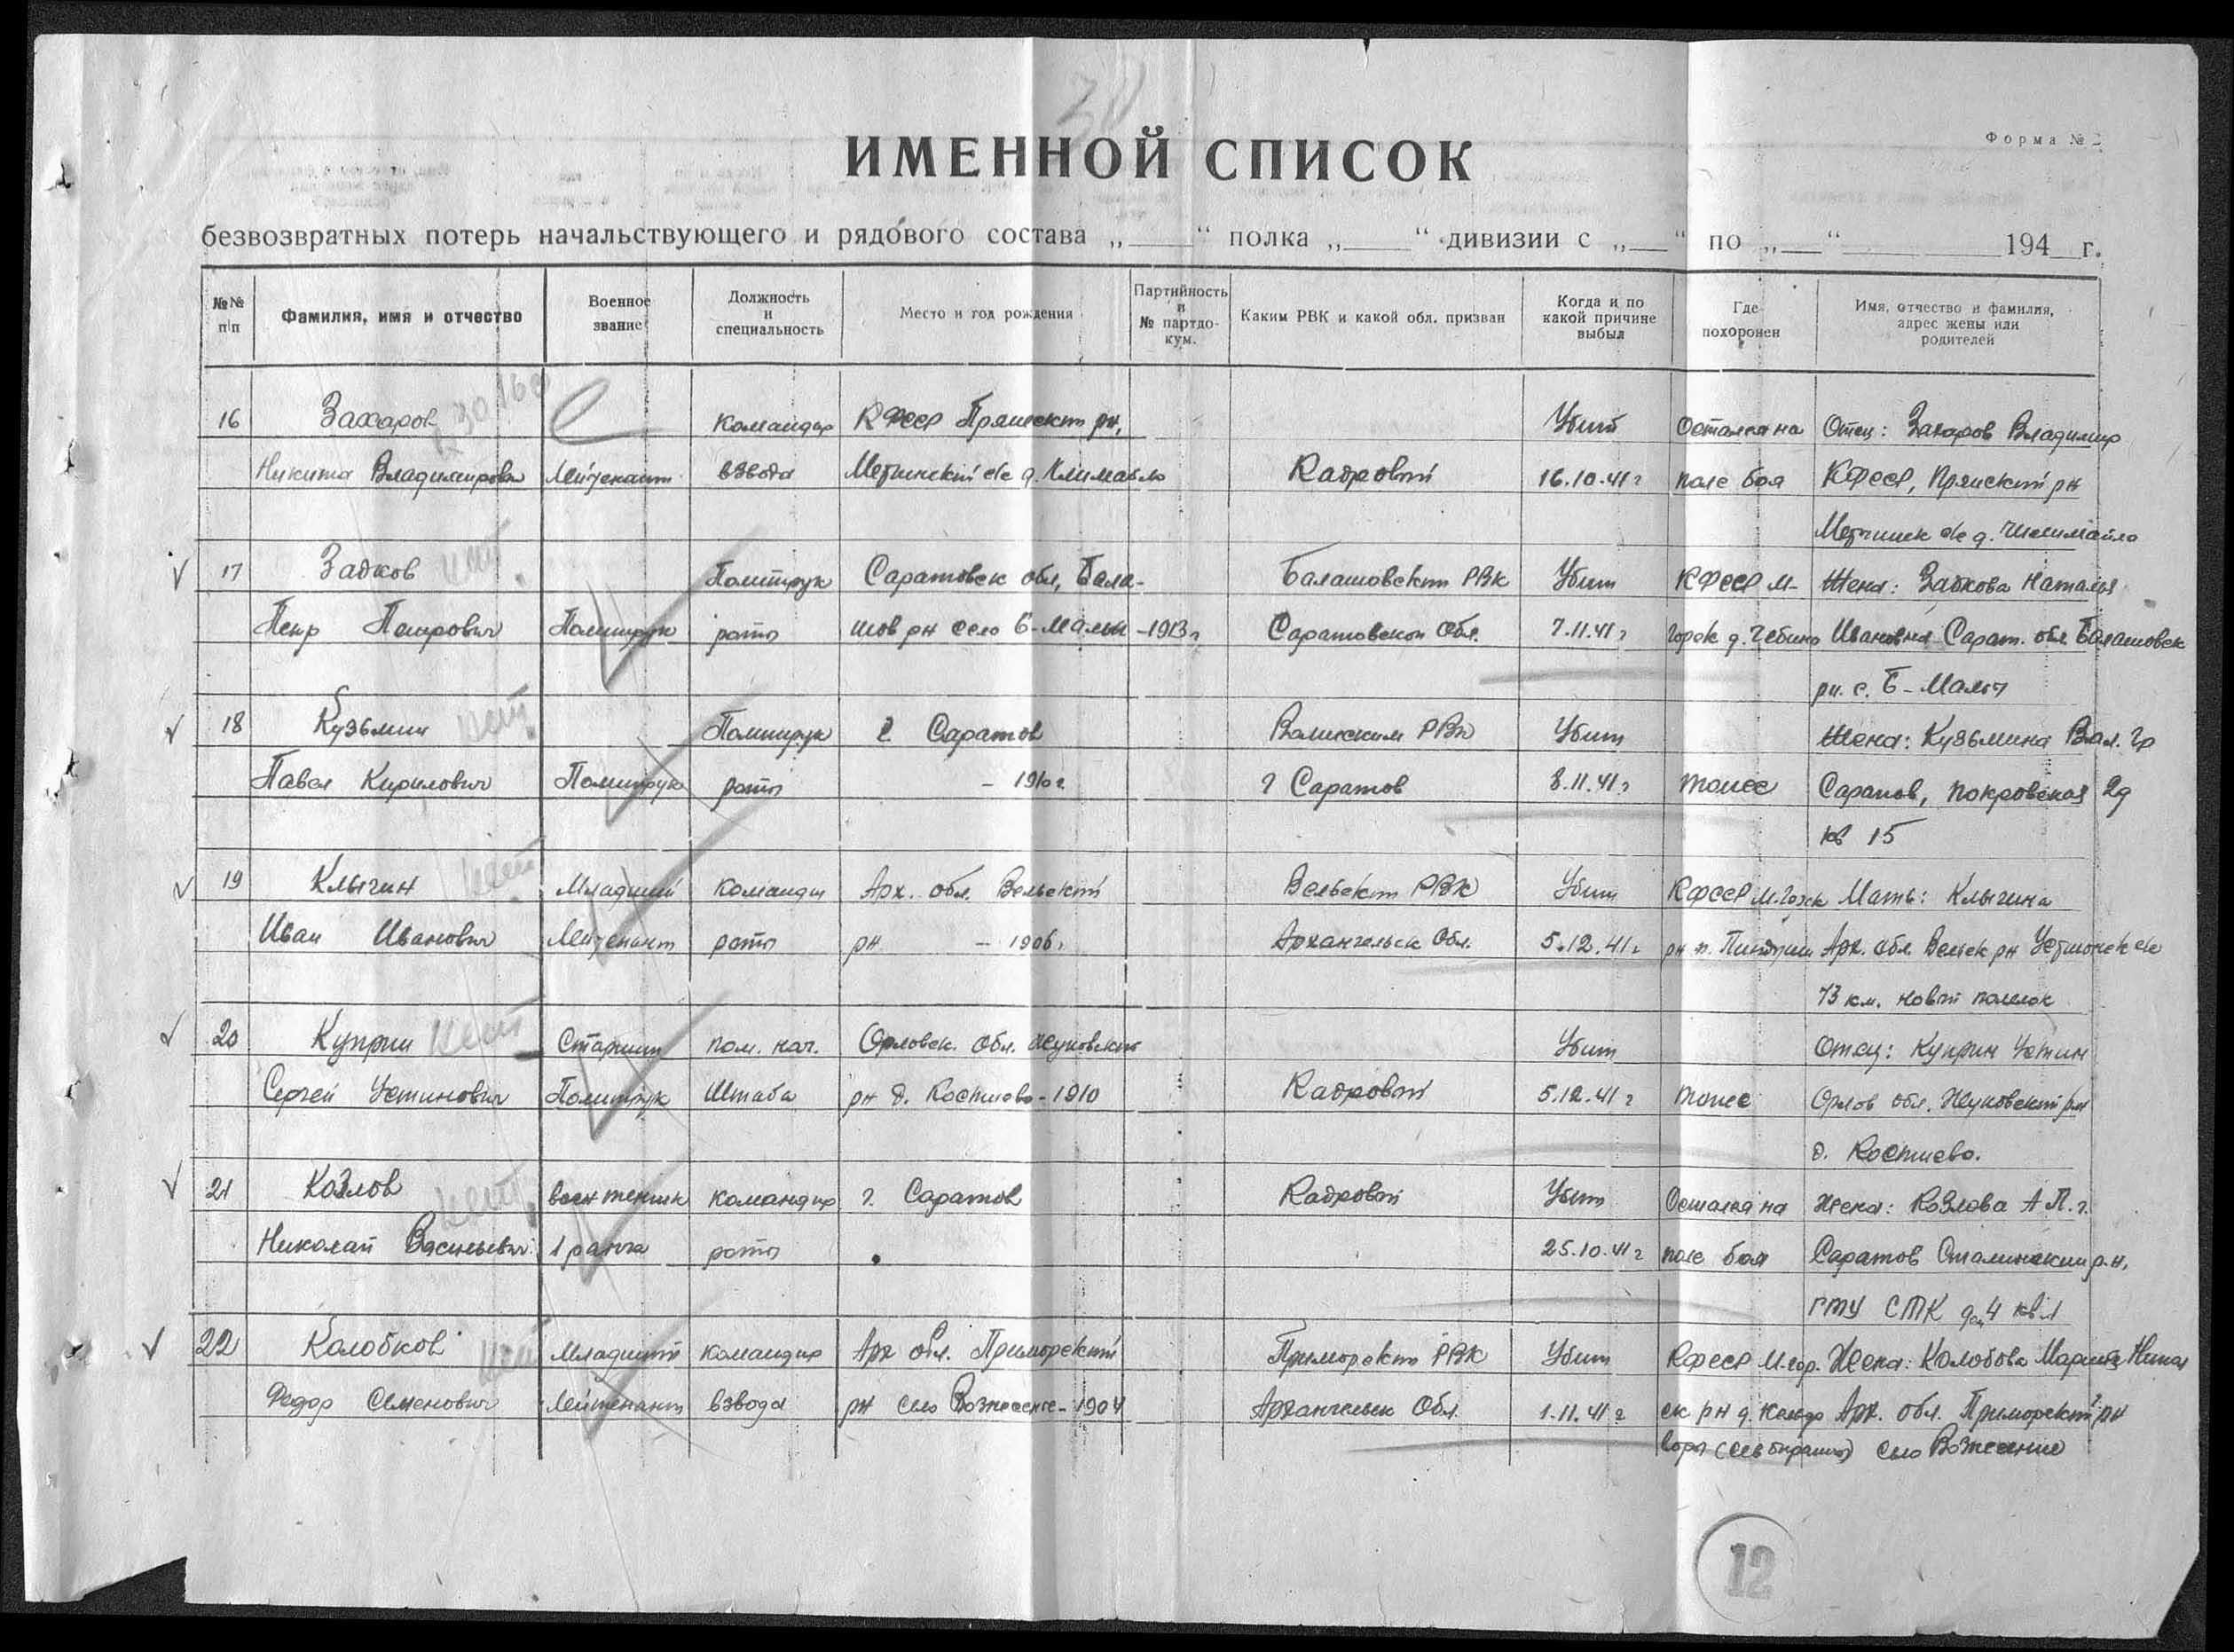 Форма №
ИМЕННОЙ СПИСОК
безвозвратных потерь начальствующего и рядового состава „____“ полка „____“ дивизии с „___“ по „___“ ________ 194__ г.
№№ п/п
Фамилия, имя и отчество
Военное звание
Должность и специальность
Место и год рождения
Партийность и № партдокум.
Каким РВК и какой обл. призван
Когда и по какой причине выбыл
Где похоронен
Имя, отчество и фамилия, адрес жены или родителей
16 Захаров командир КФССР рн, Убит Остался на Отец: Захаров Владимир
Никита Владимирович Лейтенант взвода с/с д. Кадровый 16.10.41г поле боя КФССР, рн
с/с д.
17 Задков Политрук Саратовск обл, Бала- Балашовским РВК Убит КФССР М- Жена: Задкова Наталья
Петр Петрович Политрук роты шов рн село Б-Малы -1913г Саратовской Обл. 7.11.41г горск д. Чебино Ивановна Сарат. обл. Балашовск
рн. с. Б-Малы
18 Кузьмин Политрук г. Саратов РВК Убит Жена: Кузьмина Вал. Гр
Павел Кирилович Политрук роты - 1910г г Саратов 8.11.41г тоже Саратов, Покровская 2д
кв 15
19 Клыгин Младший командир Арх. обл. Вельский Вельским РВК Убит КФССР М.Горск Мать: Клыгина
Иван Иванович Лейтенант роты рн - 1906г Архангельск Обл. 5.12.41г рн п. Арх. обл. Вельск рн с/с
73 км. новый поселок
20 Куприн Старший пом. нач. Орловск. обл. Жуковский Убит Отец: Куприн Устин
Сергей Устинович Политрук Штаба рн д. Костиево - 1910 Кадровый 5.12.41г тоже Орлов обл. Жуковский рн
д. Костиево.
21 Козлов воентехник командир г. Саратов Кадровый Убит Остался на Жена: Козлова А П. г.
Николай Васильевич 1 ранга роты 25.10.41г поле боя Саратов Сталинский р.н,
СТК д 4 кв 1
22 Колобков Младший командир Арх обл. Приморский Приморским РВК Убит КФССР М.гор. Жена: Колобова
Федор Семенович Лейтенант взвода рн село - 1904 Архангельск Обл. 1.11.41г ск рн д. Арх. обл. Приморский рн
село
12